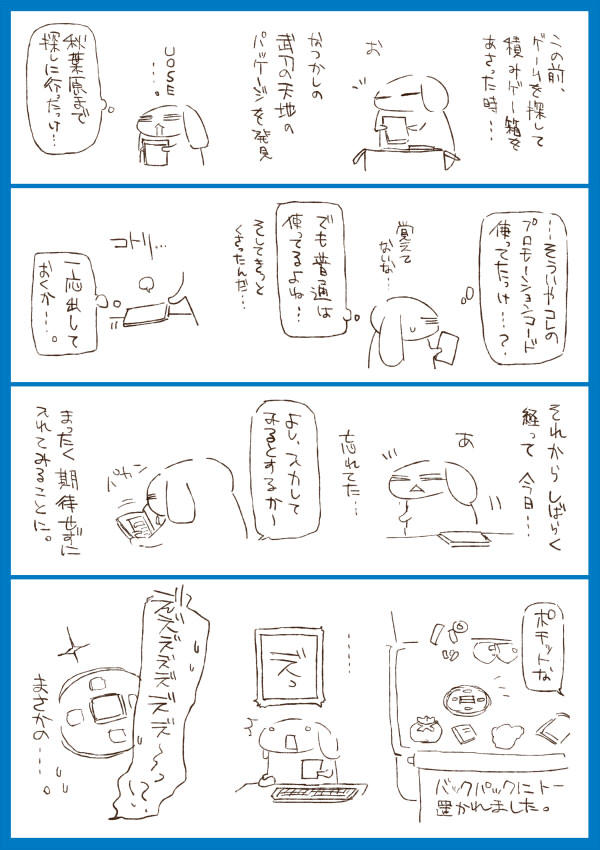 この前、
ゲームを探して
積みゲー箱を
あさった時…
お
なつかしの
武刀の天地の
パッケージを発見
UOSE
…。
秋葉原まで
探しに行ったっけ…
…そういやコレの
プロモーションコード
使ってたっけ…？
覚えて
ないな…
でも普通は
使ってるよね…
そしてきっと
くさったんだ…
コトリ…
一応出して
おくか…。
それからしばらく
経って今日…
あ
忘れてた…
よし、入力して
みるとするかー
パカン
まったく期待せずに
入れてみることに。
ポモッドな
バックパックにトー
置かれました。
……
デスっ
デズデズデデデ〜〜っ
まさかの…。